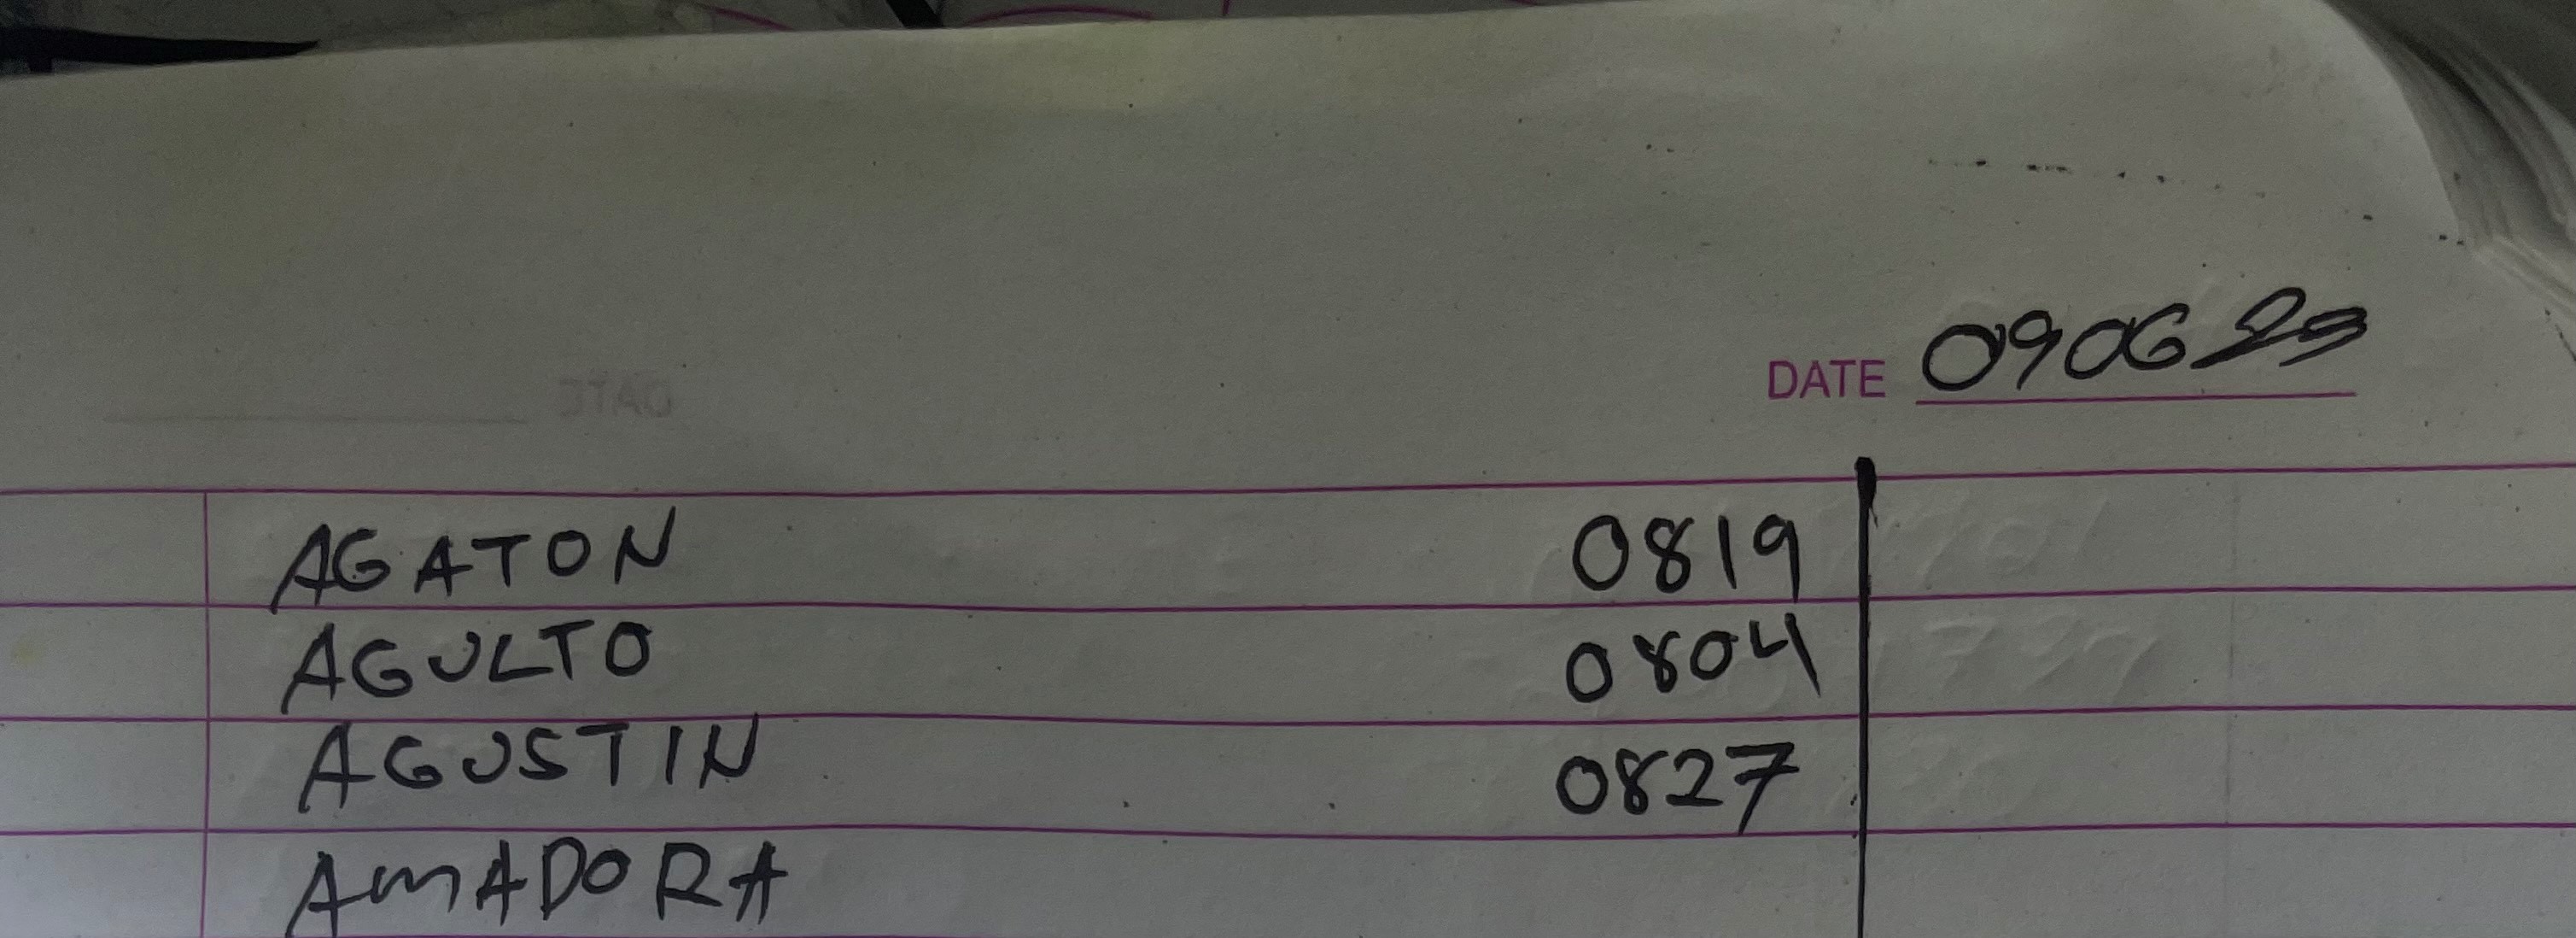 DATE 090623
AGATON 0819
AGULTO 0804
AGUSTIN 0827
AMADORA